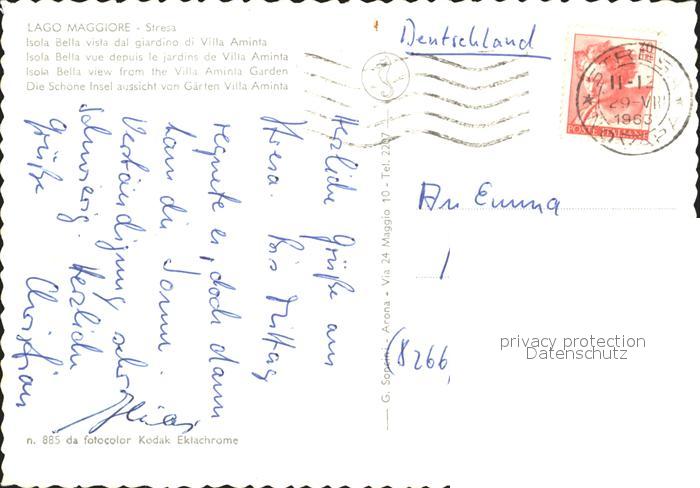 LAGO MAGGIORE - Stresa
Isola Bella vista dal giardino di Villa Aminta
Isola Bella vue depuis le jardins de Villa Aminta
Isola Bella view from the Villa Aminta Garden
Die Schöne Insel aussicht von Gärten Villa Aminta
Deutschland
STRESA
11-12
29-VII
1963
POSTE ITALIANE
Herzliche Grüße aus
Stresa. Bis Mittag
regnete es, doch dann
kam die Sonne.
Verständigung sehr
schwierig. Herzliche
Grüße
Christian
G. Sopetti - Arona - Via 24 Maggio 10 - Tel. 2207
An Emma
(8266,
privacy protection
Datenschutz
n. 885 da fotocolor Kodak Ektachrome